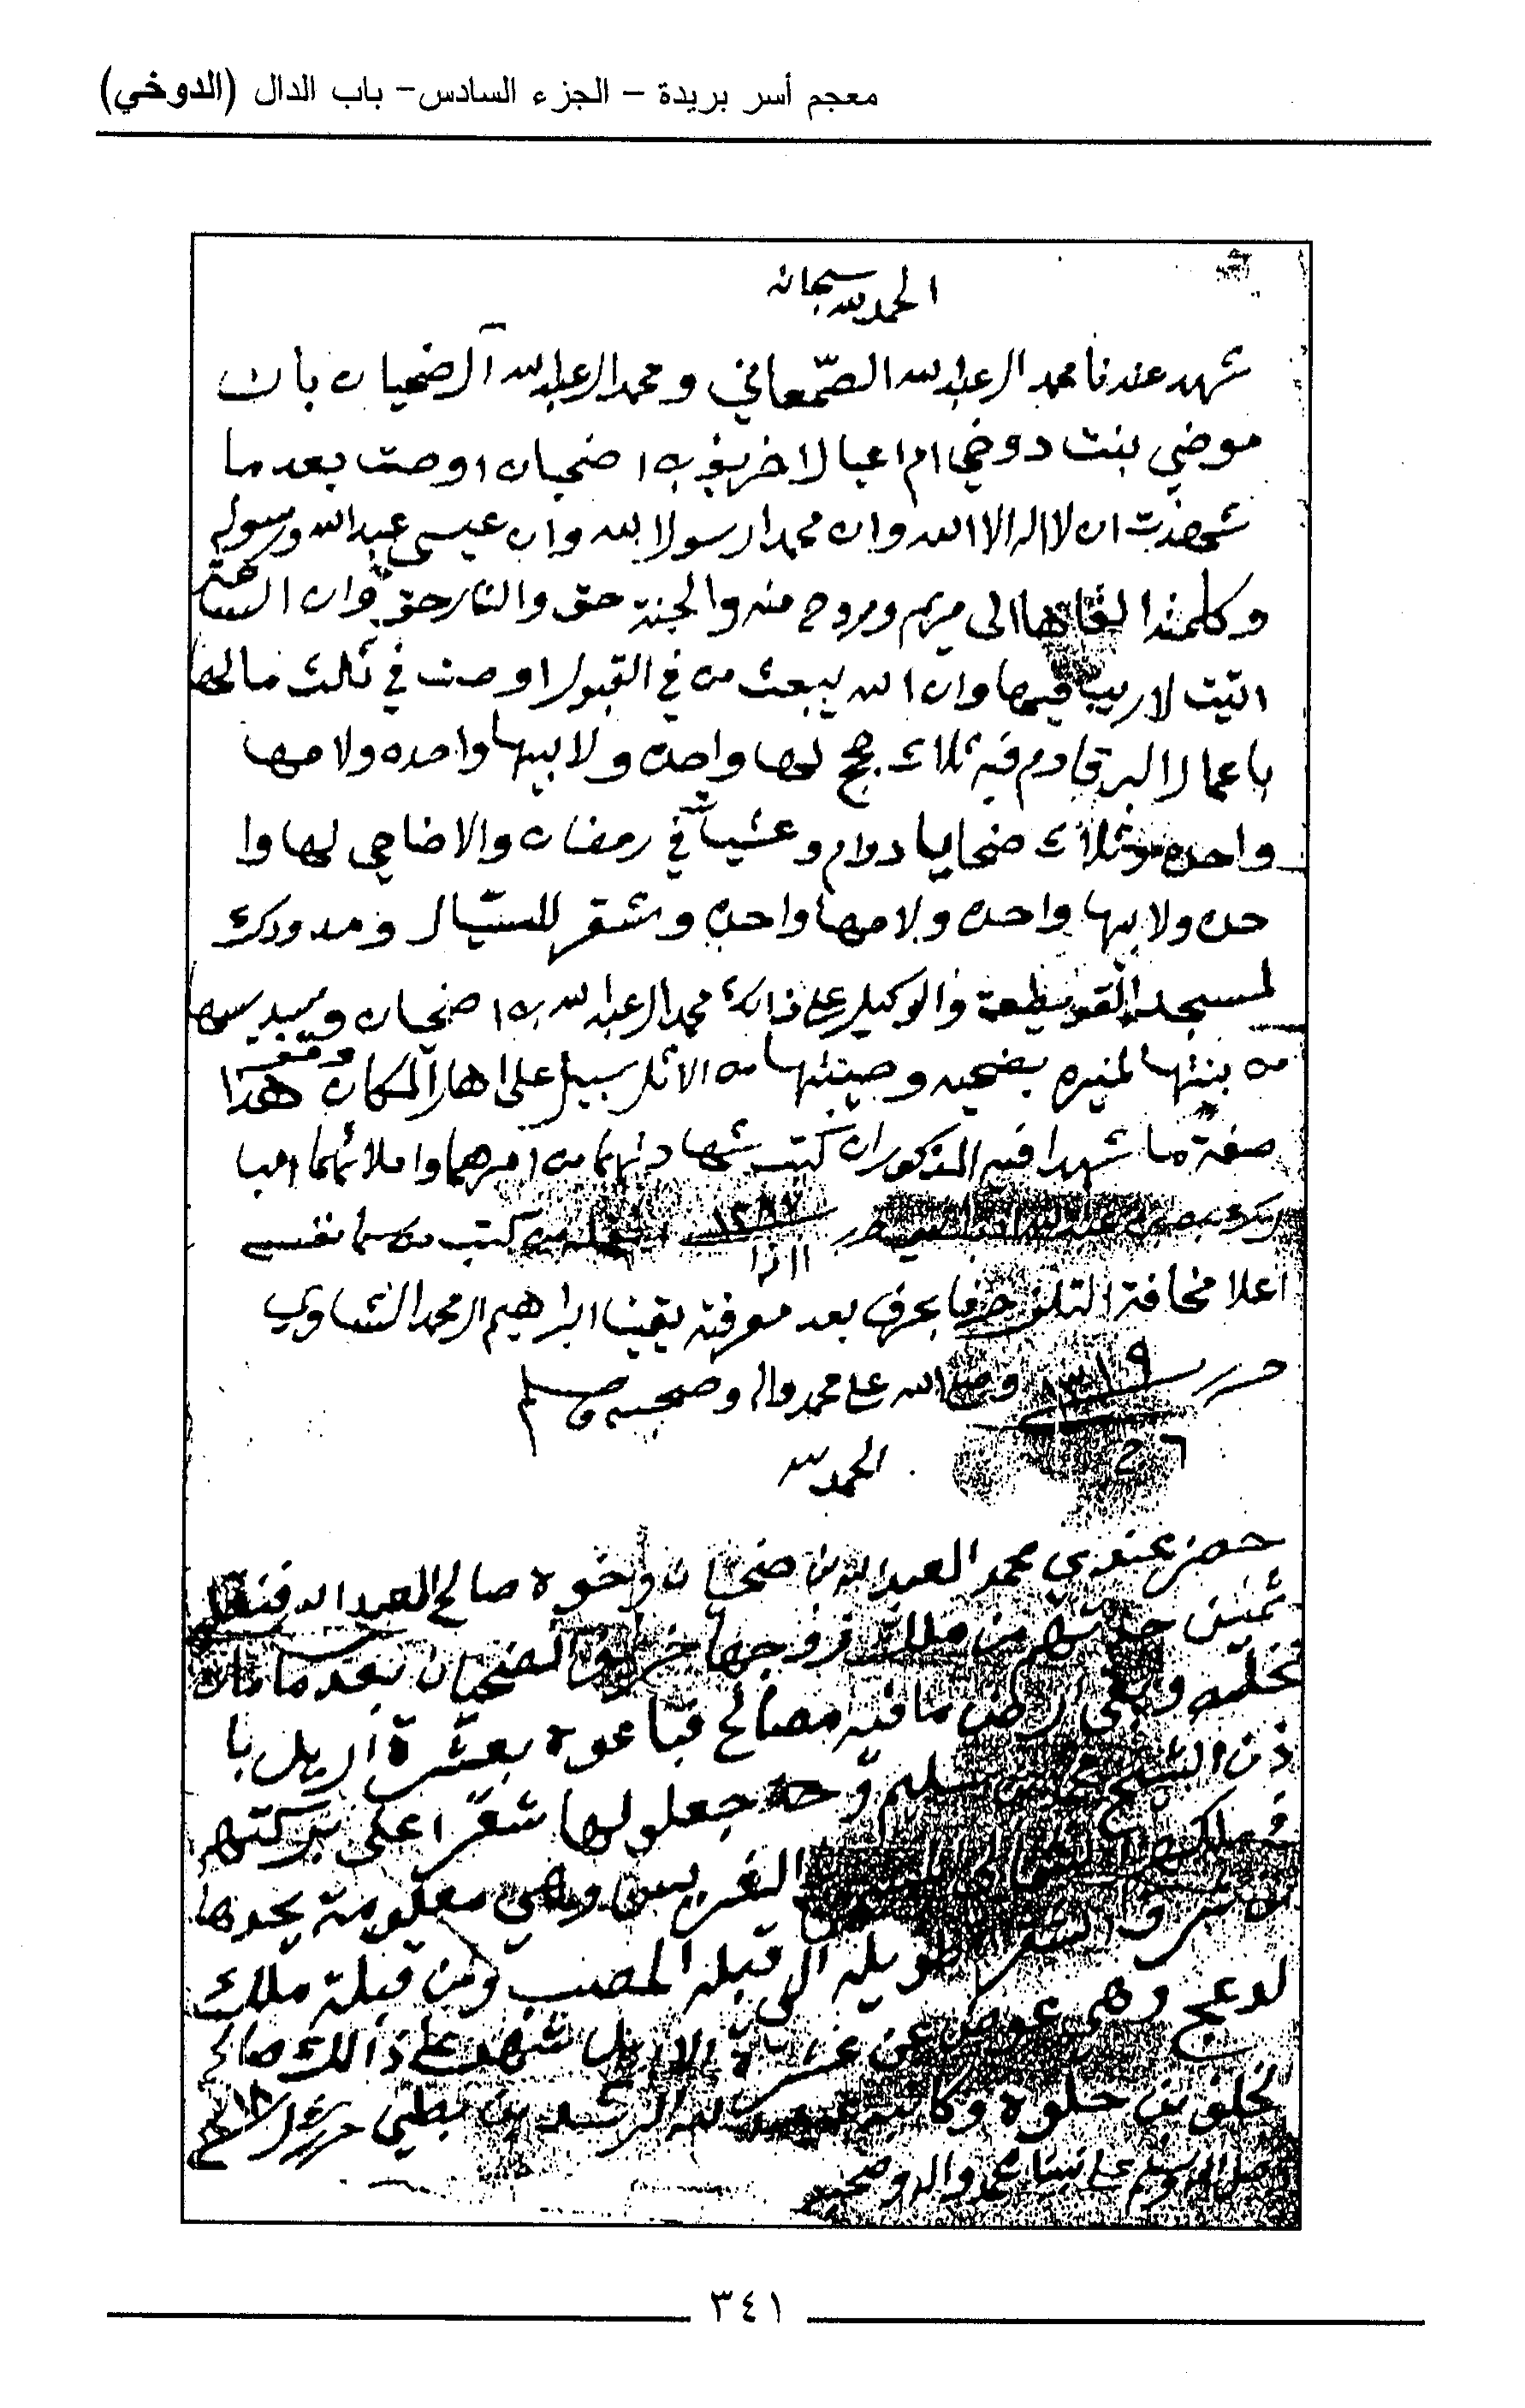 معجم أسر بريدة – الجزء السادس– باب الدال (الدوخي)
الحمد لله سبحانه
شهد عندنا محمد العبدالله الصمعاني ومحمد العبدالله آل ضحيان بان
موضي بنت دوخي ام اعيال اخريف بن اضحيان اوصت بعدما
شهدت ان لا اله الا الله وان محمدا رسول الله وان عيسى عبدالله ورسوله
وكلمته القاها الى مريم وروح منه والجنة حق والنار حق وان الساعة
اتيت لا ريب فيها وان الله يبعث من في القبور اوصت في ثلث مالها
باعمال البر قادم فيه ثلاث حجج لها واحده ولابيها واحده ولامها
واحده وثلاث ضحايا دوام وعشيات في رمضان والاضاحي لها وا
حده ولابيها واحده ولامها واحده وشقر للسيال ومدودك
لمسجد القويطعة والوكيل على ذالك محمد العبدالله بن اضحيان
من بنتها منيره بضحيه وصينيتها من الاثل سبيل على اهل المكان وقف هذا
صفة ما شهدا فيه المذكوران كتب شهادتهما من امرهما واملائهما
١٢٨٧ نقله من كتب من سما نفسه
اعلا مخافة التلف حرفا بحرف بعد معرفته يقينا ابراهيم المحمد الشاوي
حرر ١٣١٩ وصلى الله على محمد واله وصحبه وسلم
٢٦
الحمد لله
حضر عندي محمد العبدالله بن ضحيان واخوه صالح العبدالله
ثمين من ملك زوجها خريف الضحيان بعدما مات
نخليه وبقي ارض ما فيه مصالح فباعوه بعشرة اريل با
ذن الشيخ محمد بن سليم وحه جعلولها شقرا على بركتهم
في ملكهم وهي معلومة يحدها
من شرق الشقرا طويله الى قبله المصب ومن قبلة ملك
لدعج وهي عوض عن عشرة الاريل شهد على ذالك صالح
الخلف بن حلوة وكاتبه عبدالله الرشيد بن بطي
وصلى الله وسلم على نبينا محمد واله وصحبه
٣٤١